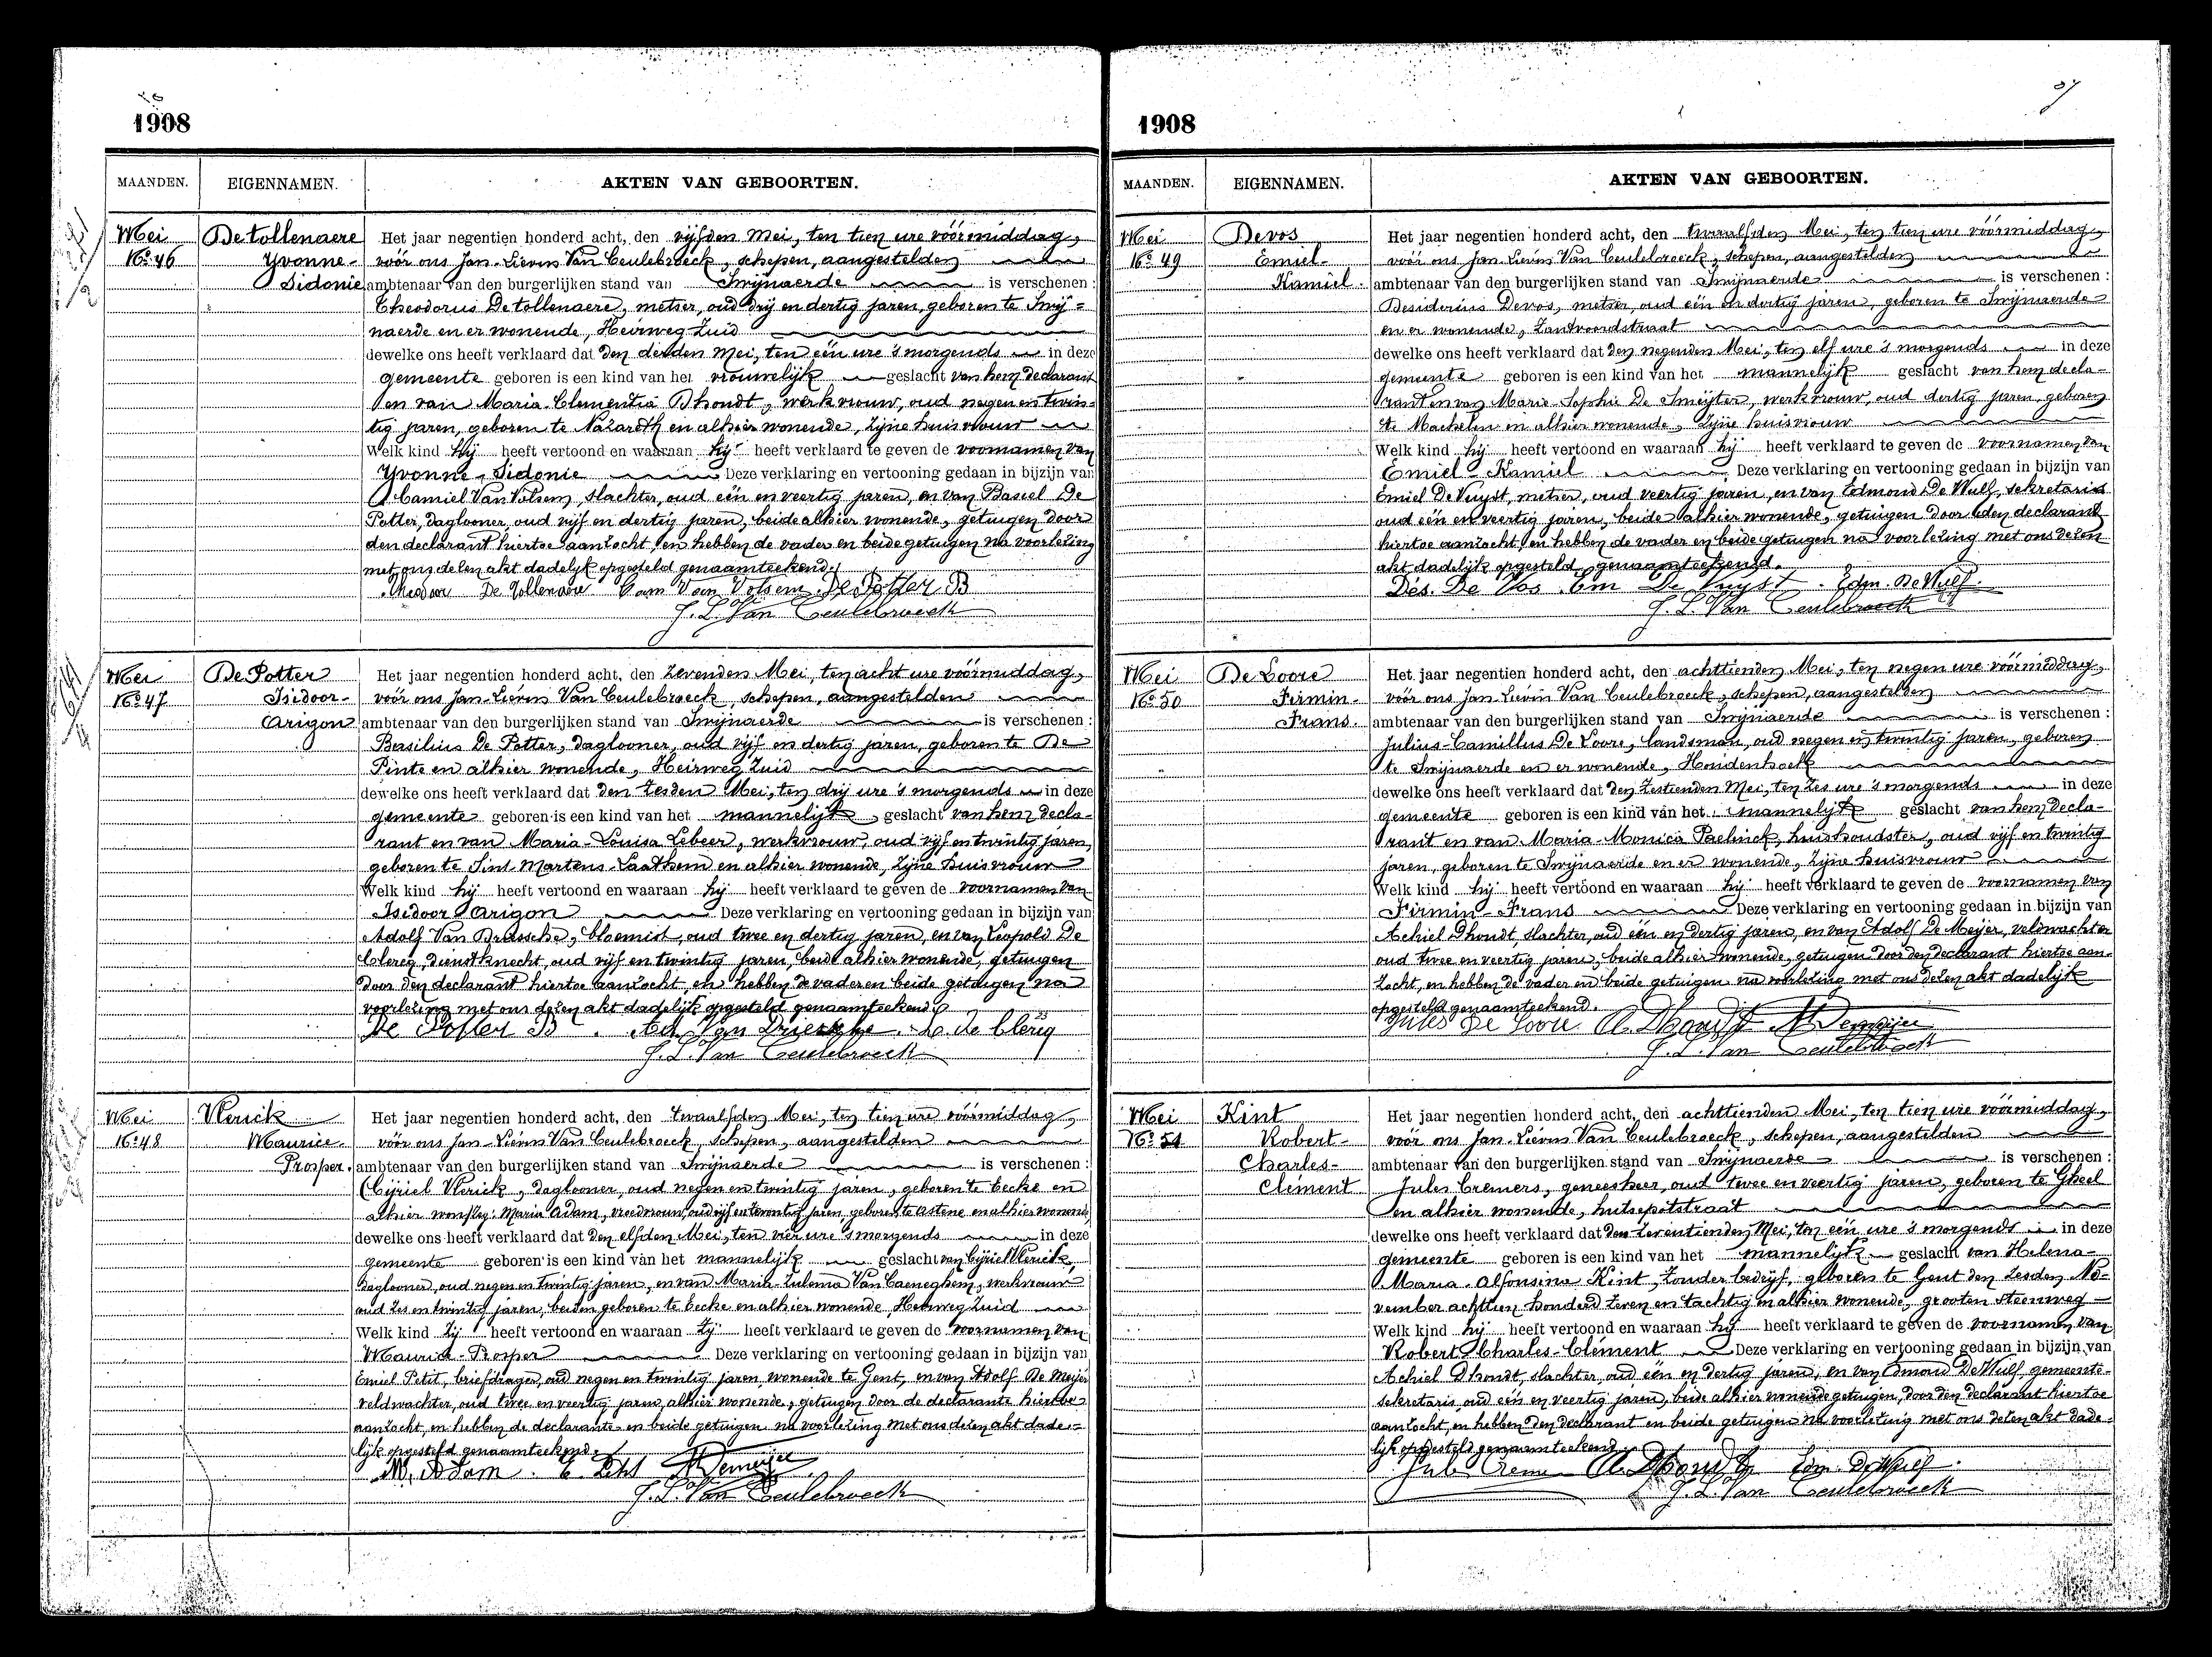 1908
MAANDEN. EIGENNAMEN. AKTEN VAN GEBOORTEN.
Mei Detollenaere Het jaar negentien honderd acht, den vijfden Mei, ten tien ure vóórmiddag,
No 46 Yvonne- voór ons Jan-Lievin Van Ceulebroeck, schepen, aangestelden
Sidonie ambtenaar van den burgerlijken stand van Swijnaerde is verschenen :
Theodorus Detollenaere, metser, oud drij en dertig jaren, geboren te Swij=
naerde en er wonende, Heirweg Zuid
dewelke ons heeft verklaard dat den derden Mei, ten eén ure 's morgends in deze
gemeente geboren is een kind van het vrouwelijk geslacht van hem declarant
en van Maria-Clementia Dhondt, werkvrouw, oud negen en twin-
tig jaren, geboren te Nazareth en alhier wonende, zijne huisvrouw
Welk kind hij heeft vertoond en waaraan hij heeft verklaard te geven de voornamen van
Yvonne-Sidonie Deze verklaring en vertooning gedaan in bijzijn van
Camiel Van Volsem, slachter, oud eén en veertig jaren, en van Basiel De
Potter, daglooner, oud vijf en dertig jaren, beide alhier wonende, getuigen door
den declarant hiertoe aanzocht, en hebben de vader en beide getuigen na voorlezing
met ons dezen akt dadelijk opgesteld genaamteekend.
Theodoor De Tollenaere Cam Van Volsem De Potter B
J. L. Van Ceulebroeck
Mei De Potter Het jaar negentien honderd acht, den zevenden Mei, ten acht ure vóórmiddag,
No 47 Isidoor- voór ons Jan-Lievin Van Ceulebroeck, schepen, aangestelden
Arigon ambtenaar van den burgerlijken stand van Swijnaerde is verschenen :
Basilius De Potter, daglooner, oud vijf en dertig jaren, geboren te De
Pinte en alhier wonende, Heirweg Zuid
dewelke ons heeft verklaard dat den zesden Mei, ten drij ure 's morgends in deze
gemeente geboren is een kind van het mannelijk geslacht van hem decla-
rant en van Maria-Louisa Lebeer, werkvrouw, oud vijf en twintig jaren,
geboren te Sint-Martens-Laathem en alhier wonende, zijne huisvrouw
Welk kind hij heeft vertoond en waaraan hij heeft verklaard te geven de voornamen van
Isidoor Arigon Deze verklaring en vertooning gedaan in bijzijn van
Adolf Van Driessche, bloemist, oud twee en dertig jaren, en van Leopold De
Clercq, dienstknecht, oud vijf en twintig jaren, beide alhier wonende, getuigen
door den declarant hiertoe aanzocht, en hebben de vader en beide getuigen na
voorlezing met ons dezen akt dadelijk opgesteld genaamteekend.
De Potter B Ad. Van Driessche L. de Clercq
J. L. Van Ceulebroeck
Mei Vlerick Het jaar negentien honderd acht, den twaalfden Mei, ten tien ure vóórmiddag,
No 48 Maurice- voór ons Jan-Lievin Van Ceulebroeck, schepen, aangestelden
Prosper. ambtenaar van den burgerlijken stand van Swijnaerde is verschenen :
(Cijriel Vlerick, daglooner, oud negen en twintig jaren, geboren te Eecke en
alhier Maria Adam, vroedvrouw, oud vijf en twintig jaren, geboren te Astene en alhier wonende,
dewelke ons heeft verklaard dat den elfden Mei, ten vier ure 's morgends in deze
gemeente geboren is een kind van het mannelijk geslacht van Cijriel Vlerick,
daglooner, oud negen en twintig jaren, en van Maria-Zulema Van Caeneghem, werkvrouw
oud zes en twintig jaren, beiden geboren te Eecke en alhier wonende, Heirweg Zuid
Welk kind zij heeft vertoond en waaraan zij heeft verklaard te geven de voornamen van
Maurice-Prosper Deze verklaring en vertooning gedaan in bijzijn van
Emiel Petit, briefdrager, oud negen en twintig jaren, wonende te Gent, en van Adolf De Meijer
veldwachter, oud twee en veertig jaren, alhier wonende, getuigen door de declarante hiertoe
aanzocht, en hebben de declarante en beide getuigen na voorlezing met ons dezen akt dade=
lijk opgesteld genaamteekend.
M. Adam. E. Petit A Demeijer
J. L. Van Ceulebroeck
1908
MAANDEN. EIGENNAMEN. AKTEN VAN GEBOORTEN.
Mei Devos Het jaar negentien honderd acht, den twaalfden Mei, ten tien ure vóórmiddag,
No 49 Emiel- voór ons Jan-Lievin Van Ceulebroeck, schepen, aangestelden
Kamiel. ambtenaar van den burgerlijken stand van Swijnaerde is verschenen :
Desiderius Devos, metser, oud eén en dertig jaren, geboren te Swijnaerde
en er wonende, Zantvoordstraat
dewelke ons heeft verklaard dat den negenden Mei, ten elf ure 's morgends in deze
gemeente geboren is een kind van het mannelijk geslacht van hem decla-
rant en van Maria-Sophie De Smeijter, werkvrouw, oud dertig jaren, geboren
te Machelen en alhier wonende, zijne huisvrouw
Welk kind hij heeft vertoond en waaraan hij heeft verklaard te geven de voornamen van
Emiel-Kamiel Deze verklaring en vertooning gedaan in bijzijn van
Emiel De Vuyst, metser, oud veertig jaren, en van Edmond De Wulf, sekretaris
oud eén en veertig jaren, beide alhier wonende, getuigen door den declarant
hiertoe aanzocht, en hebben de vader en beide getuigen na voorlezing met ons dezen
akt dadelijk opgesteld genaamteekend.
Dés. De Vos Em De Vuyst. Edm. De Wulf.
J. L. Van Ceulebroeck
Mei De Loore Het jaar negentien honderd acht, den achttienden Mei, ten negen ure vóórmiddag,
No 50 Firmin- voór ons Jan Lievin Van Ceulebroeck, schepen, aangestelden
Frans. ambtenaar van den burgerlijken stand van Swijnaerde is verschenen :
Julius-Camillus De Loore, landsman, oud negen en twintig jaren, geboren
te Swijnaerde en er wonende, Hondenhoek
dewelke ons heeft verklaard dat den zestienden Mei, ten zes ure 's morgends in deze
gemeente geboren is een kind van het mannelijk geslacht van hem decla-
rant en van Maria-Monica Paelinck, huishoudster, oud vijf en twintig
jaren, geboren te Swijnaerde en er wonende, zijne huisvrouw
Welk kind hij heeft vertoond en waaraan hij heeft verklaard te geven de voornamen van
Firmin-Frans Deze verklaring en vertooning gedaan in bijzijn van
Achiel Dhondt, slachter, oud eén en dertig jaren, en van Adolf De Meijer, veldwachter
oud twee en veertig jaren, beide alhier wonende, getuigen door den declarant hiertoe aan-
zocht, en hebben de vader en beide getuigen na voorlezing met ons dezen akt dadelijk
opgesteld genaamteekend.
Jules De Loore A. Dhondt A Demeijer
J. L. Van Ceulebroeck
Mei Kint Het jaar negentien honderd acht, den achttienden Mei, ten tien ure vóórmiddag,
No 51 Robert- voór ons Jan-Lievin Van Ceulebroeck, schepen, aangestelden
Charles- ambtenaar van den burgerlijken stand van Swijnaerde is verschenen :
Clément Jules Cremers, geneesheer, oud twee en veertig jaren, geboren te Gheel
en alhier wonende, hutsepotstraat
dewelke ons heeft verklaard dat den zeventienden Mei, ten eén ure 's morgends in deze
gemeente geboren is een kind van het mannelijk geslacht van Helena-
Maria-Alfonsina Kint, zonder bedrijf, geboren te Gent den zesden No-
vember achttien honderd zeven en tachtig en alhier wonende, grooten steenweg
Welk kind hij heeft vertoond en waaraan hij heeft verklaard te geven de voornamen van
Robert-Charles-Clément Deze verklaring en vertooning gedaan in bijzijn van
Achiel Dhondt, slachter, oud eén en dertig jaren, en van Edmond De Wulf gemeente-
sekretaris, oud eén en veertig jaren, beide alhier wonende getuigen, door den declarant hiertoe
aanzocht, en hebben den declarant en beide getuigen na voorlezing met ons dezen akt dade-
lijk opgesteld genaamteekend.
Jul. Cremers A. Dhondt Edm. De Wulf.
J. L. Van Ceulebroeck